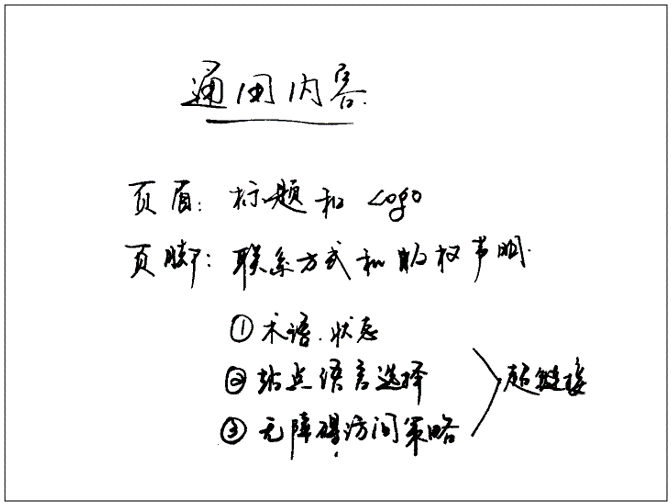 通用内容
页眉: 标题和 Logo
页脚: 联系方式和版权声明.
① 术语.状态
② 站点语言选择
③ 无障碍访问策略
超链接